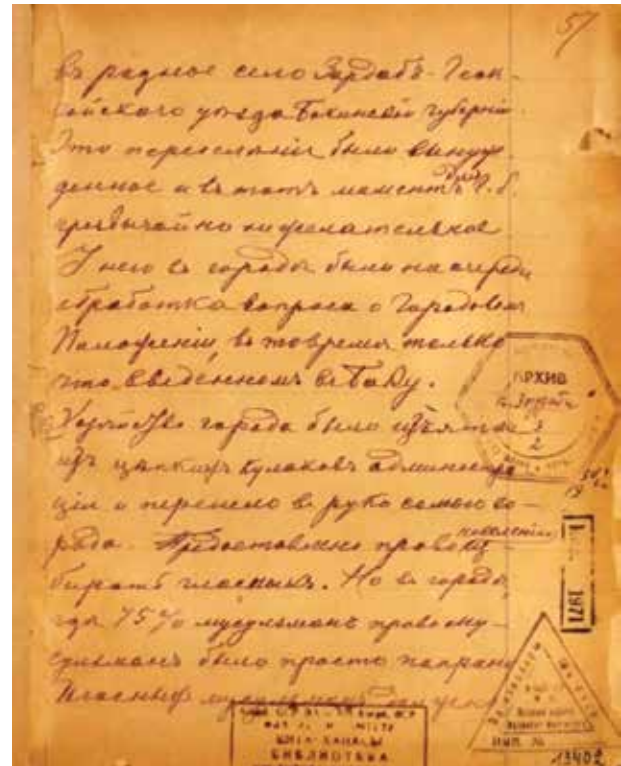 57
въ родное село Зардабъ Геок-
чайскаго уѣзда Бакинской губерніи.
Это переселеніе было вынуж-
денное и въ тотъ моментъ для Г. б.
чрезвычайно нежелательное
У него въ городѣ было на очереди
обработка вопроса о Городовомъ
Положеніи, въ то время только
что введенномъ въ Баку.
Хозяйство города было изъято
изъ цѣпкихъ кулаковъ администра
ціи и перешло въ руки самого го-
рода. Предоставлено право из-
населенію
бирать гласныхъ. Но въ городѣ,
гдѣ 75% мусульманъ право му-
сульманъ было просто попрано
Гласныхъ мусульманъ
АРХИВ
2
1971
БИБЛИОТЕКА
ИНВ. №
13402